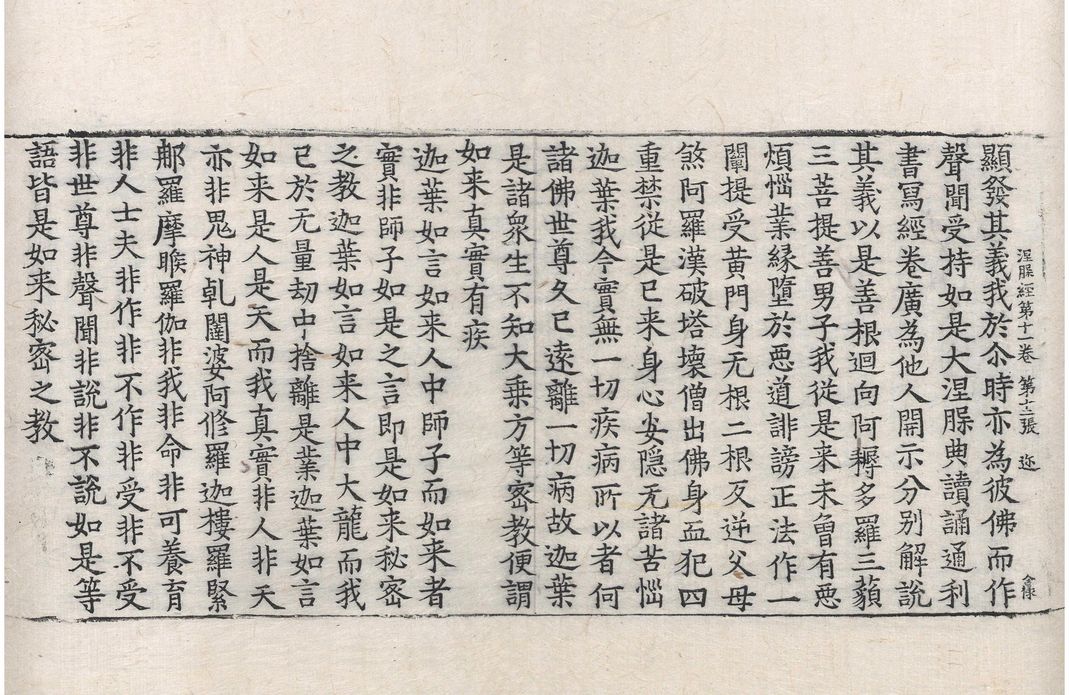 涅脵經第十一卷 第十二張 迩
顯發其義我於尒時亦為彼佛而作
聲聞受持如是大涅脵典讀誦通利
書寫經卷廣為他人開示分别解說
其義以是善根迴向阿耨多羅三藐
三菩提善男子我從是来未曾有悪
煩惱業緣墮於悪道誹謗正法作一
闡提受黄門身无根二根反逆父母
煞阿羅漢破塔壞僧出佛身血犯四
重禁從是已来身心安隐无諸苦惱
迦葉我今實無一切疾病所以者何
諸佛世尊久已遠離一切病故迦葉
是諸衆生不知大乗方等密教便謂
如来真實有疾
迦葉如言如来人中師子而如来者
實非師子如是之言即是如来秘密
之教迦葉如言如来人中大龍而我
已於无量劫中捨離是業迦葉如言
如来是人是天而我真實非人非天
亦非鬼神乹闥婆阿修羅迦樓羅緊
那羅摩睺羅伽非我非命非可養育
非人士夫非作非不作非受非不受
非世尊非聲聞非說非不說如是等
語皆是如来秘密之教